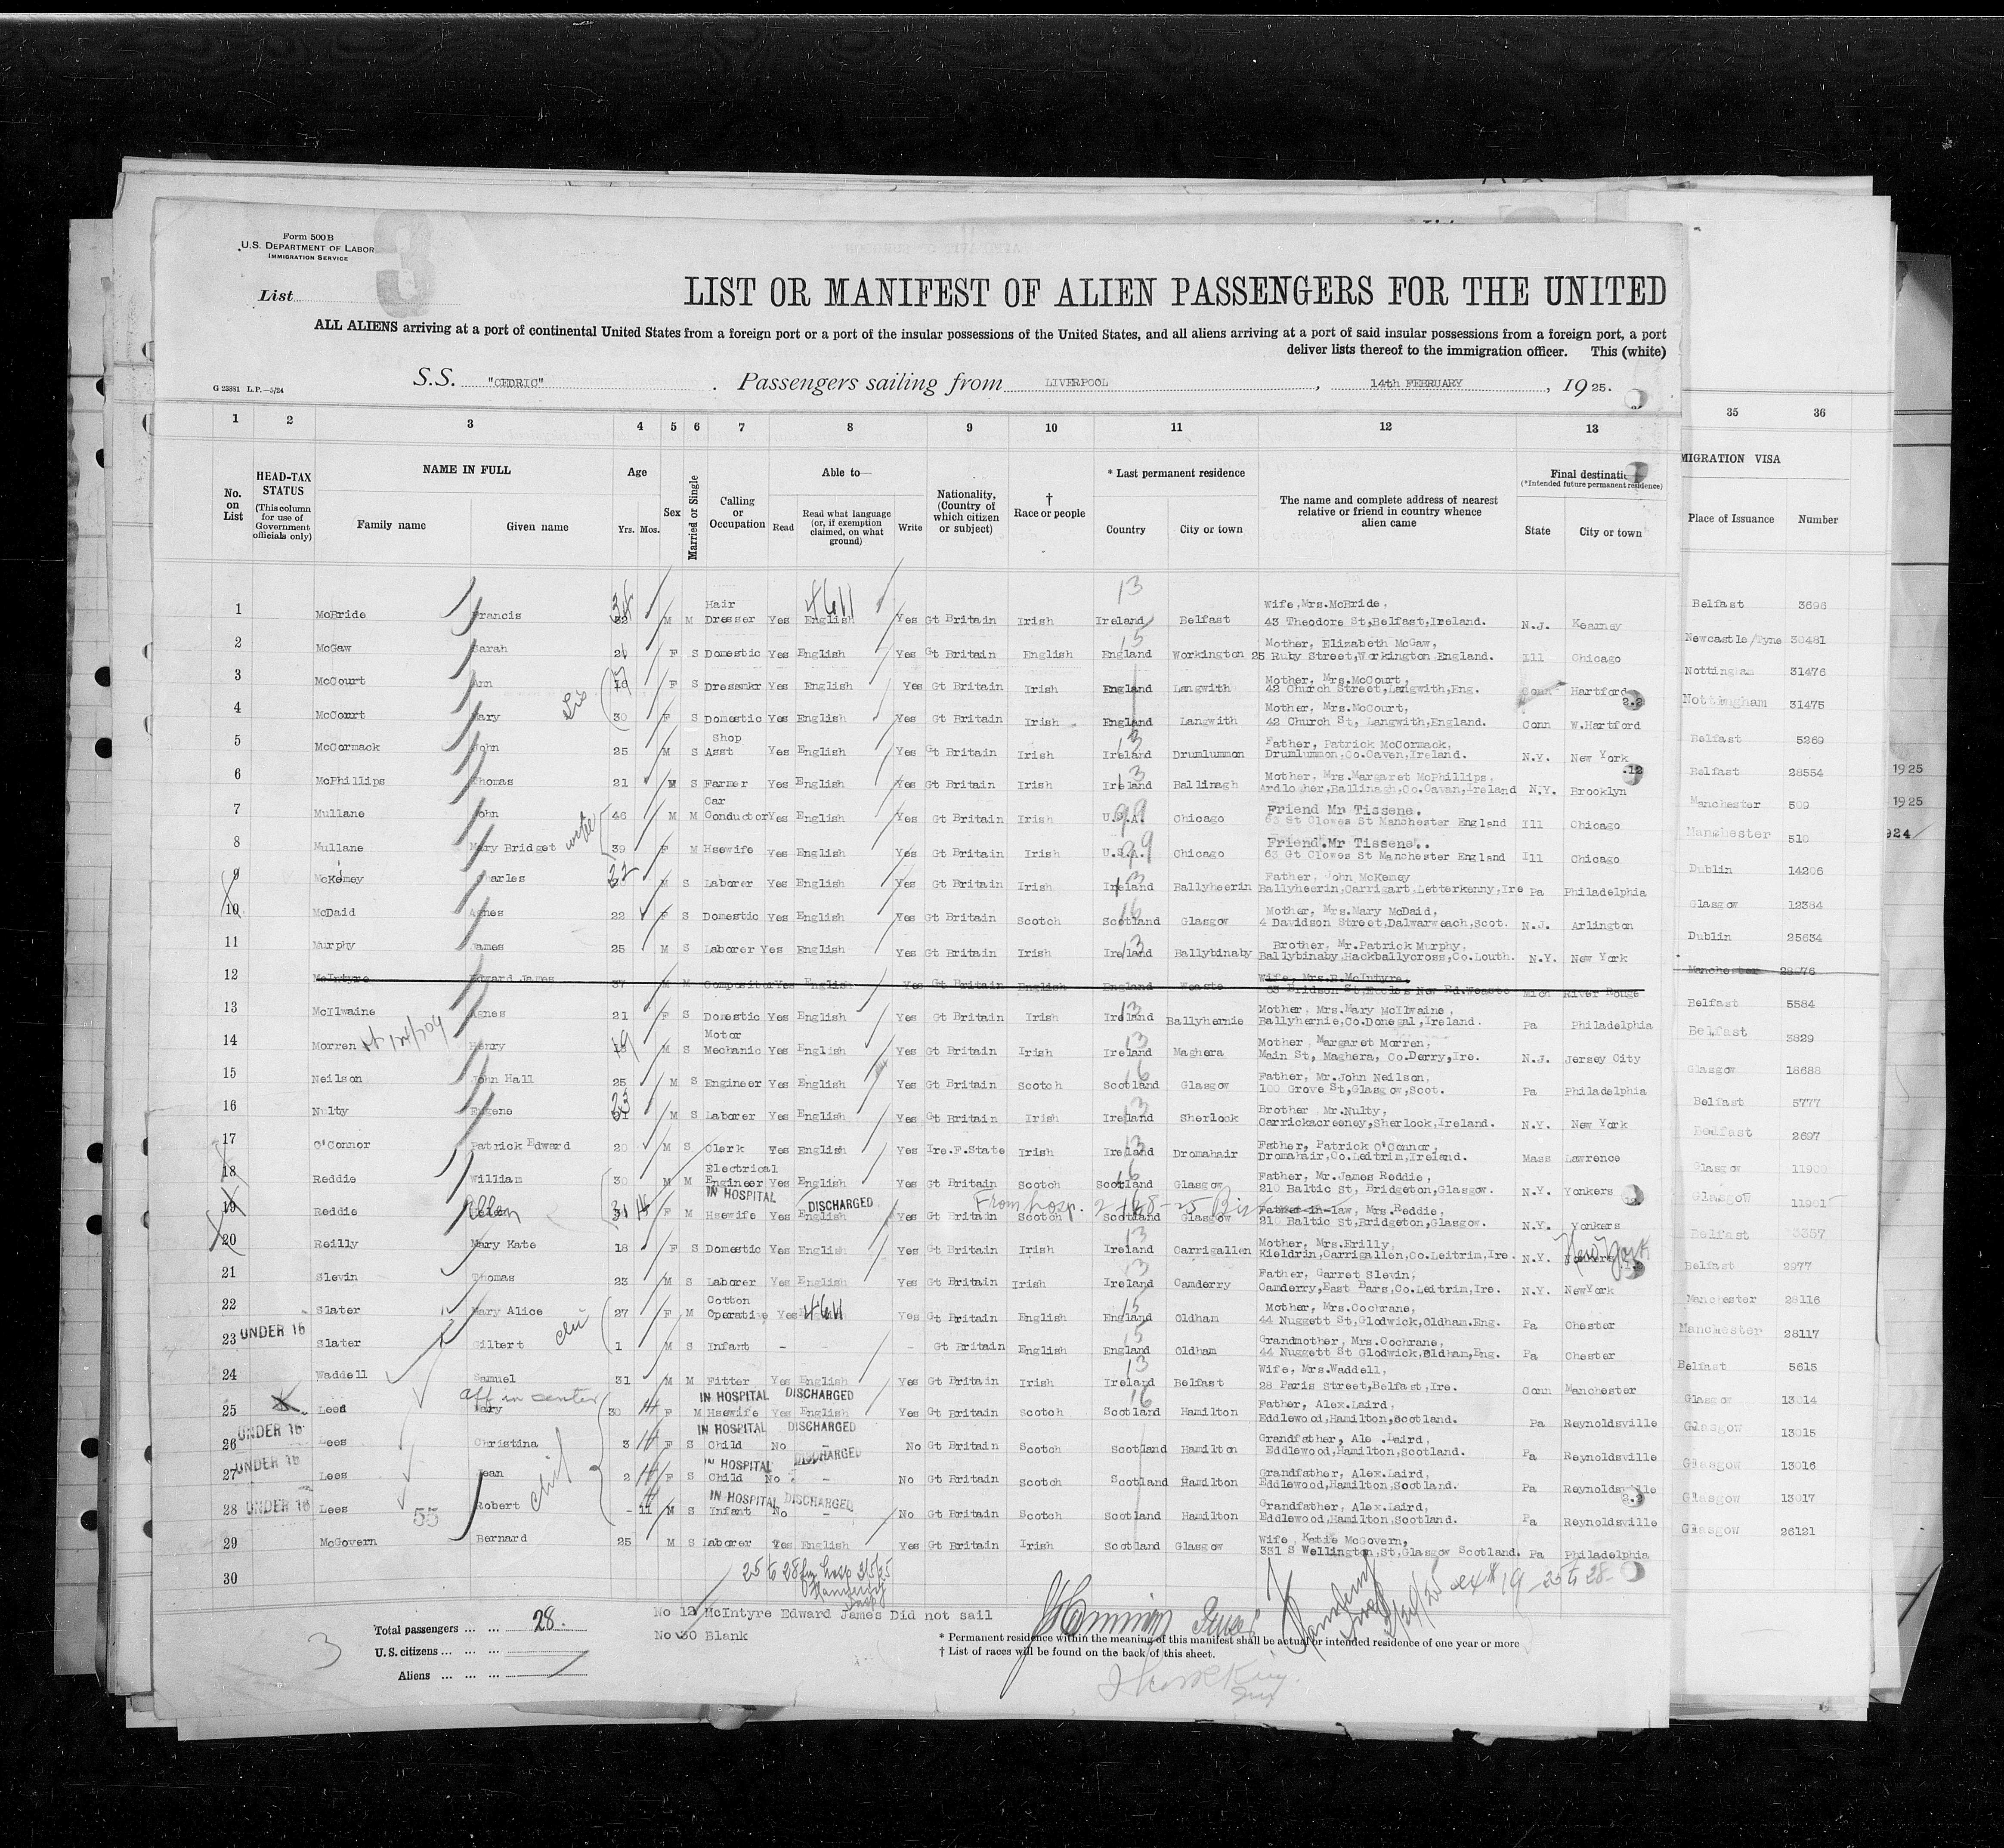 Form 500 B
U.S. DEPARTMENT OF LABOR
IMMIGRATION SERVICE
3
List
LIST OR MANIFEST OF ALIEN PASSENGERS FOR THE UNITED
ALL ALIENS arriving at a port of continental United States from a foreign port or a port of the insular possessions of the United States, and all aliens arriving at a port of said insular possessions from a foreign port, a port
deliver lists thereof to the immigration officer. This (white)
G 23881 L.P.—5/24
S.S. "CEDRIC" . Passengers sailing from LIVERPOOL , 14th FEBRUARY , 19 25.
1 2 3 4 5 6 7 8 9 10 11 12 13 35 36
No. on List
HEAD-TAX STATUS (This column for use of Government officials only)
NAME IN FULL
Family name Given name
Age
Yrs. Mos.
Sex
Married or Single
Calling or Occupation
Able to—
Read Read what language (or, if exemption claimed, on what ground) Write
Nationality, (Country of which citizen or subject)
† Race or people
* Last permanent residence
Country City or town
The name and complete address of nearest relative or friend in country whence alien came
Final destination
(*Intended future permanent residence)
State City or town
MIGRATION VISA
Place of Issuance Number
1 McBride Francis 32 M M Hair Dresser Yes English Yes Gt Britain Irish Ireland Belfast Wife, Mrs.McBride, 43 Theodore St,Belfast,Ireland. N.J. Kearney Belfast 3698
2 McGaw Sarah 21 F S Domestic Yes English Yes Gt Britain English England Workington Mother, Elizabeth McGaw, 25 Ruby Street,Workington England. Ill Chicago Newcastle/Tyne 30481
3 McCourt Ann F S Dressmkr Yes English Yes Gt Britain Irish England Langwith Mother, Mrs.McCourt, 42 Church Street,Langwith,Eng. Conn Hartford Nottingham 31476
4 McCourt Mary 30 F S Domestic Yes English Yes Gt Britain Irish England Langwith Mother, Mrs.McCourt, 42 Church St, Langwith,England. Conn W.Hartford Nottingham 31475
5 McCormack John 25 M S Shop Asst Yes English Yes Gt Britain Irish Ireland Drumlummon Father, Patrick McCormack, Drumlummon,Co.Caven,Ireland. N.Y. New York Belfast 5269
6 McPhillips Thomas 21 M S Farmer Yes English Yes Gt Britain Irish Ireland Ballinagh Mother, Mrs.Margaret McPhillips, Ardlogher,Ballinagh,Co.Cavan,Ireland N.Y. Brooklyn Belfast 28554 1925
7 Mullane John 46 M M Car Conductor Yes English Yes Gt Britain Irish U.S.A. Chicago Friend Mr Tissene. 63 St Clowes St Manchester England Ill Chicago Manchester 509 1925
8 Mullane Mary Bridget wife 39 F M Hsewife Yes English Yes Gt Britain Irish U.S.A. Chicago Friend.Mr Tissene.. 63 Gt Clowes St Manchester England Ill Chicago Manchester 510 924
9 McKemey Charles 32 M S Laborer Yes English Yes Gt Britain Irish Ireland Ballyheerin Father, John McKemey Ballyheerin,Carrigart,Letterkenny,Ire Pa Philadelphia Dublin 14206
10 McDaid Agnes 22 F S Domestic Yes English Yes Gt Britain Scotch Scotland Glasgow Mother, Mrs.Mary McDaid, 4 Davidson Street,Dalwarweach,Scot. N.J. Arlington Glasgow 12384
11 Murphy James 25 M S Laborer Yes English Yes Gt Britain Irish Ireland Ballybinaby Brother, Mr.Patrick Murphy, Ballybinaby,Hackballycross,Co.Louth. N.Y. New York Dublin 25634
12 McIntyre Edward James 37 M M Compositor Yes English Yes Gt Britain English England Weaste Wife, Mrs.B.McIntyre, Mich River Rouge Manchester
13 McIlwaine Agnes 21 F S Domestic Yes English Yes Gt Britain Irish Ireland Ballyhernie Mother, Mrs.Mary McIlwaine, Ballyhernie,Co.Donegal,Ireland. Pa Philadelphia Belfast 5584
14 Morren Henry 19 M S Motor Mechanic Yes English Yes Gt Britain Irish Ireland Maghera Mother Margaret Morren, Main St, Maghera, Co.Derry,Ire. N.J. Jersey City Belfast 5829
15 Neilson John Hall 25 M S Engineer Yes English Yes Gt Britain Scotch Scotland Glasgow Father, Mr.John Neilson, 100 Grove St,Glasgow,Scot. Pa Philadelphia Glasgow 18688
16 Nulty Eugene 23 M S Laborer Yes English Yes Gt Britain Irish Ireland Sherlock Brother Mr.Nulty, Carrickacreeney,Sherlock,Ireland. N.Y. New York Belfast 5777
17 O'Connor Patrick Edward 20 M S Clerk Yes English Yes Ire.F.State Irish Ireland Dromahair Father, Patrick O'Connor, Dromahair,Co.Leitrim,Ireland. Mass Lawrence Belfast 2697
18 Reddie William 30 M M Electrical Engineer Yes English Yes Gt Britain Scotch Scotland Glasgow Father, Mr.James Reddie, 210 Baltic St, Bridgeton,Glasgow. N.Y. Yonkers Glasgow 11900
IN HOSPITAL DISCHARGED From hosp.
19 Reddie Helen 31 F M Hsewife Yes English Yes Gt Britain Scotch Scotland Glasgow Father-in-law, Mrs.Reddie, 210 Baltic St,Bridgeton,Glasgow. N.Y. Yonkers Glasgow 11901
20 Reilly Mary Kate 18 F S Domestic Yes English Yes Gt Britain Irish Ireland Carrigallen Mother, Mrs.Erilly, Kieldrin,Carrigallen,Co.Leitrim,Ire. N.Y. New York Belfast 3357
21 Slevin Thomas 23 M S Laborer Yes English Yes Gt Britain Irish Ireland Camderry Father, Garret Slevin, Camderry,East Bars,Co.Leitrim,Ire. N.Y. NewYork Belfast 2977
22 Slater Mary Alice 27 F M Cotton Operative Yes English Yes Gt Britain English England Oldham Mother, Mrs.Cochrane, 44 Nuggett St,Glodwick,Oldham.Eng. Pa Chester Manchester 28116
23 UNDER 16 Slater Gilbert 1 M S Infant - - - Gt Britain English England Oldham Grandmother, Mrs.Cochrane, 44 Nuggett St Glodwick,Oldham,Eng. Pa Chester Manchester 28117
24 Waddell Samuel 31 M M Fitter Yes English Yes Gt Britain Irish Ireland Belfast Wife, Mrs.Waddell, 28 Paris Street,Belfast,Ire. Conn Manchester Belfast 5615
IN HOSPITAL DISCHARGED
25 Lees Mary 30 F M Hsewife Yes English Yes Gt Britain Scotch Scotland Hamilton Father, Alex.Laird, Eddlewood,Hamilton,Scotland. Pa Reynoldsville Glasgow 13014
IN HOSPITAL DISCHARGED
26 UNDER 16 Lees Christina 3 F S Child No - No Gt Britain Scotch Scotland Hamilton Grandfather, Ale .Laird, Eddlewood,Hamilton,Scotland. Pa Reynoldsville Glasgow 13015
IN HOSPITAL DISCHARGED
27 UNDER 16 Lees Jean 2 F S Child No - No Gt Britain Scotch Scotland Hamilton Grandfather, Alex.Laird, Eddlewood,Hamilton,Scotland. Pa Reynoldsville Glasgow 13016
IN HOSPITAL DISCHARGED
28 UNDER 16 Lees 55 Robert - 11 M S Infant No - No Gt Britain Scotch Scotland Hamilton Grandfather, Alex.Laird, Eddlewood,Hamilton,Scotland. Pa Reynoldsville Glasgow 13017
29 McGovern Bernard 25 M S Laborer Yes English Yes Gt Britain Irish Scotland Glasgow Wife Katie McGovern, 331 S Wellington,St,Glasgow Scotland. Pa Philadelphia Glasgow 26121
30
25 to 28
No 12 McIntyre Edward James Did not sail
No 30 Blank
Total passengers ... ... 28.
U.S. citizens ... ... ...
Aliens ... ... ...
3
* Permanent residence within the meaning of this manifest shall be actual or intended residence of one year or more
† List of races will be found on the back of this sheet.